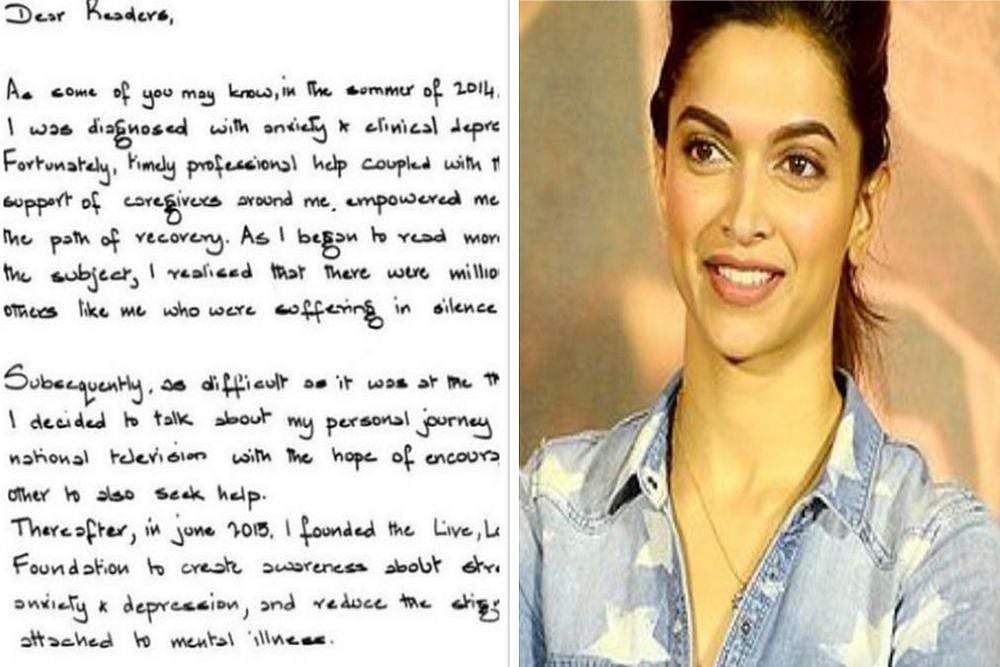 Dear Readers,
As some of you may know, in the summer of 2014,
I was diagnosed with anxiety & clinical depre
Fortunately, timely professional help coupled with t
support of caregivers around me, empowered me
the path of recovery. As I began to read mor
the subject, I realised that there were millio
others like me who were suffering in silence
Subsequently, as difficult as it was at the t
I decided to talk about my personal journey
national television with the hope of encoura
other to also seek help.
Thereafter, in june 2015, I founded the Live, L
Foundation to create awareness about stre
anxiety & depression, and reduce the stig
attached to mental illness.